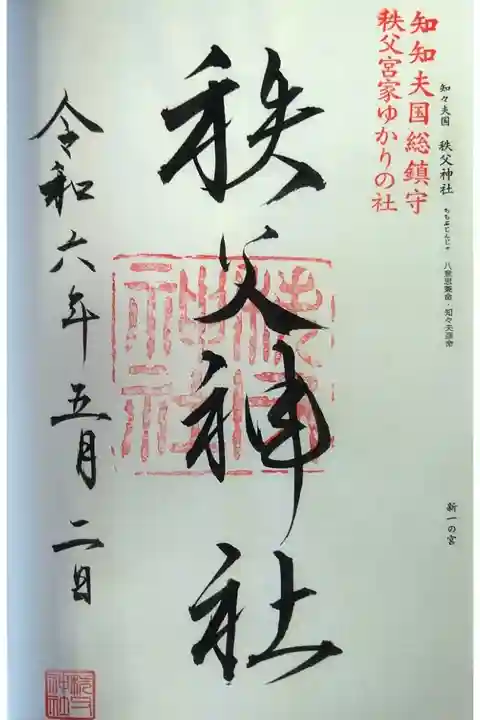 知々夫国 秩父神社 ちちぶじんじゃ 八意思兼命・知々夫彦命
新一の宮
知知夫国総鎮守
秩父宮家ゆかりの社
秩父神社
令和六年五月二日
秩父神社
秩父神社